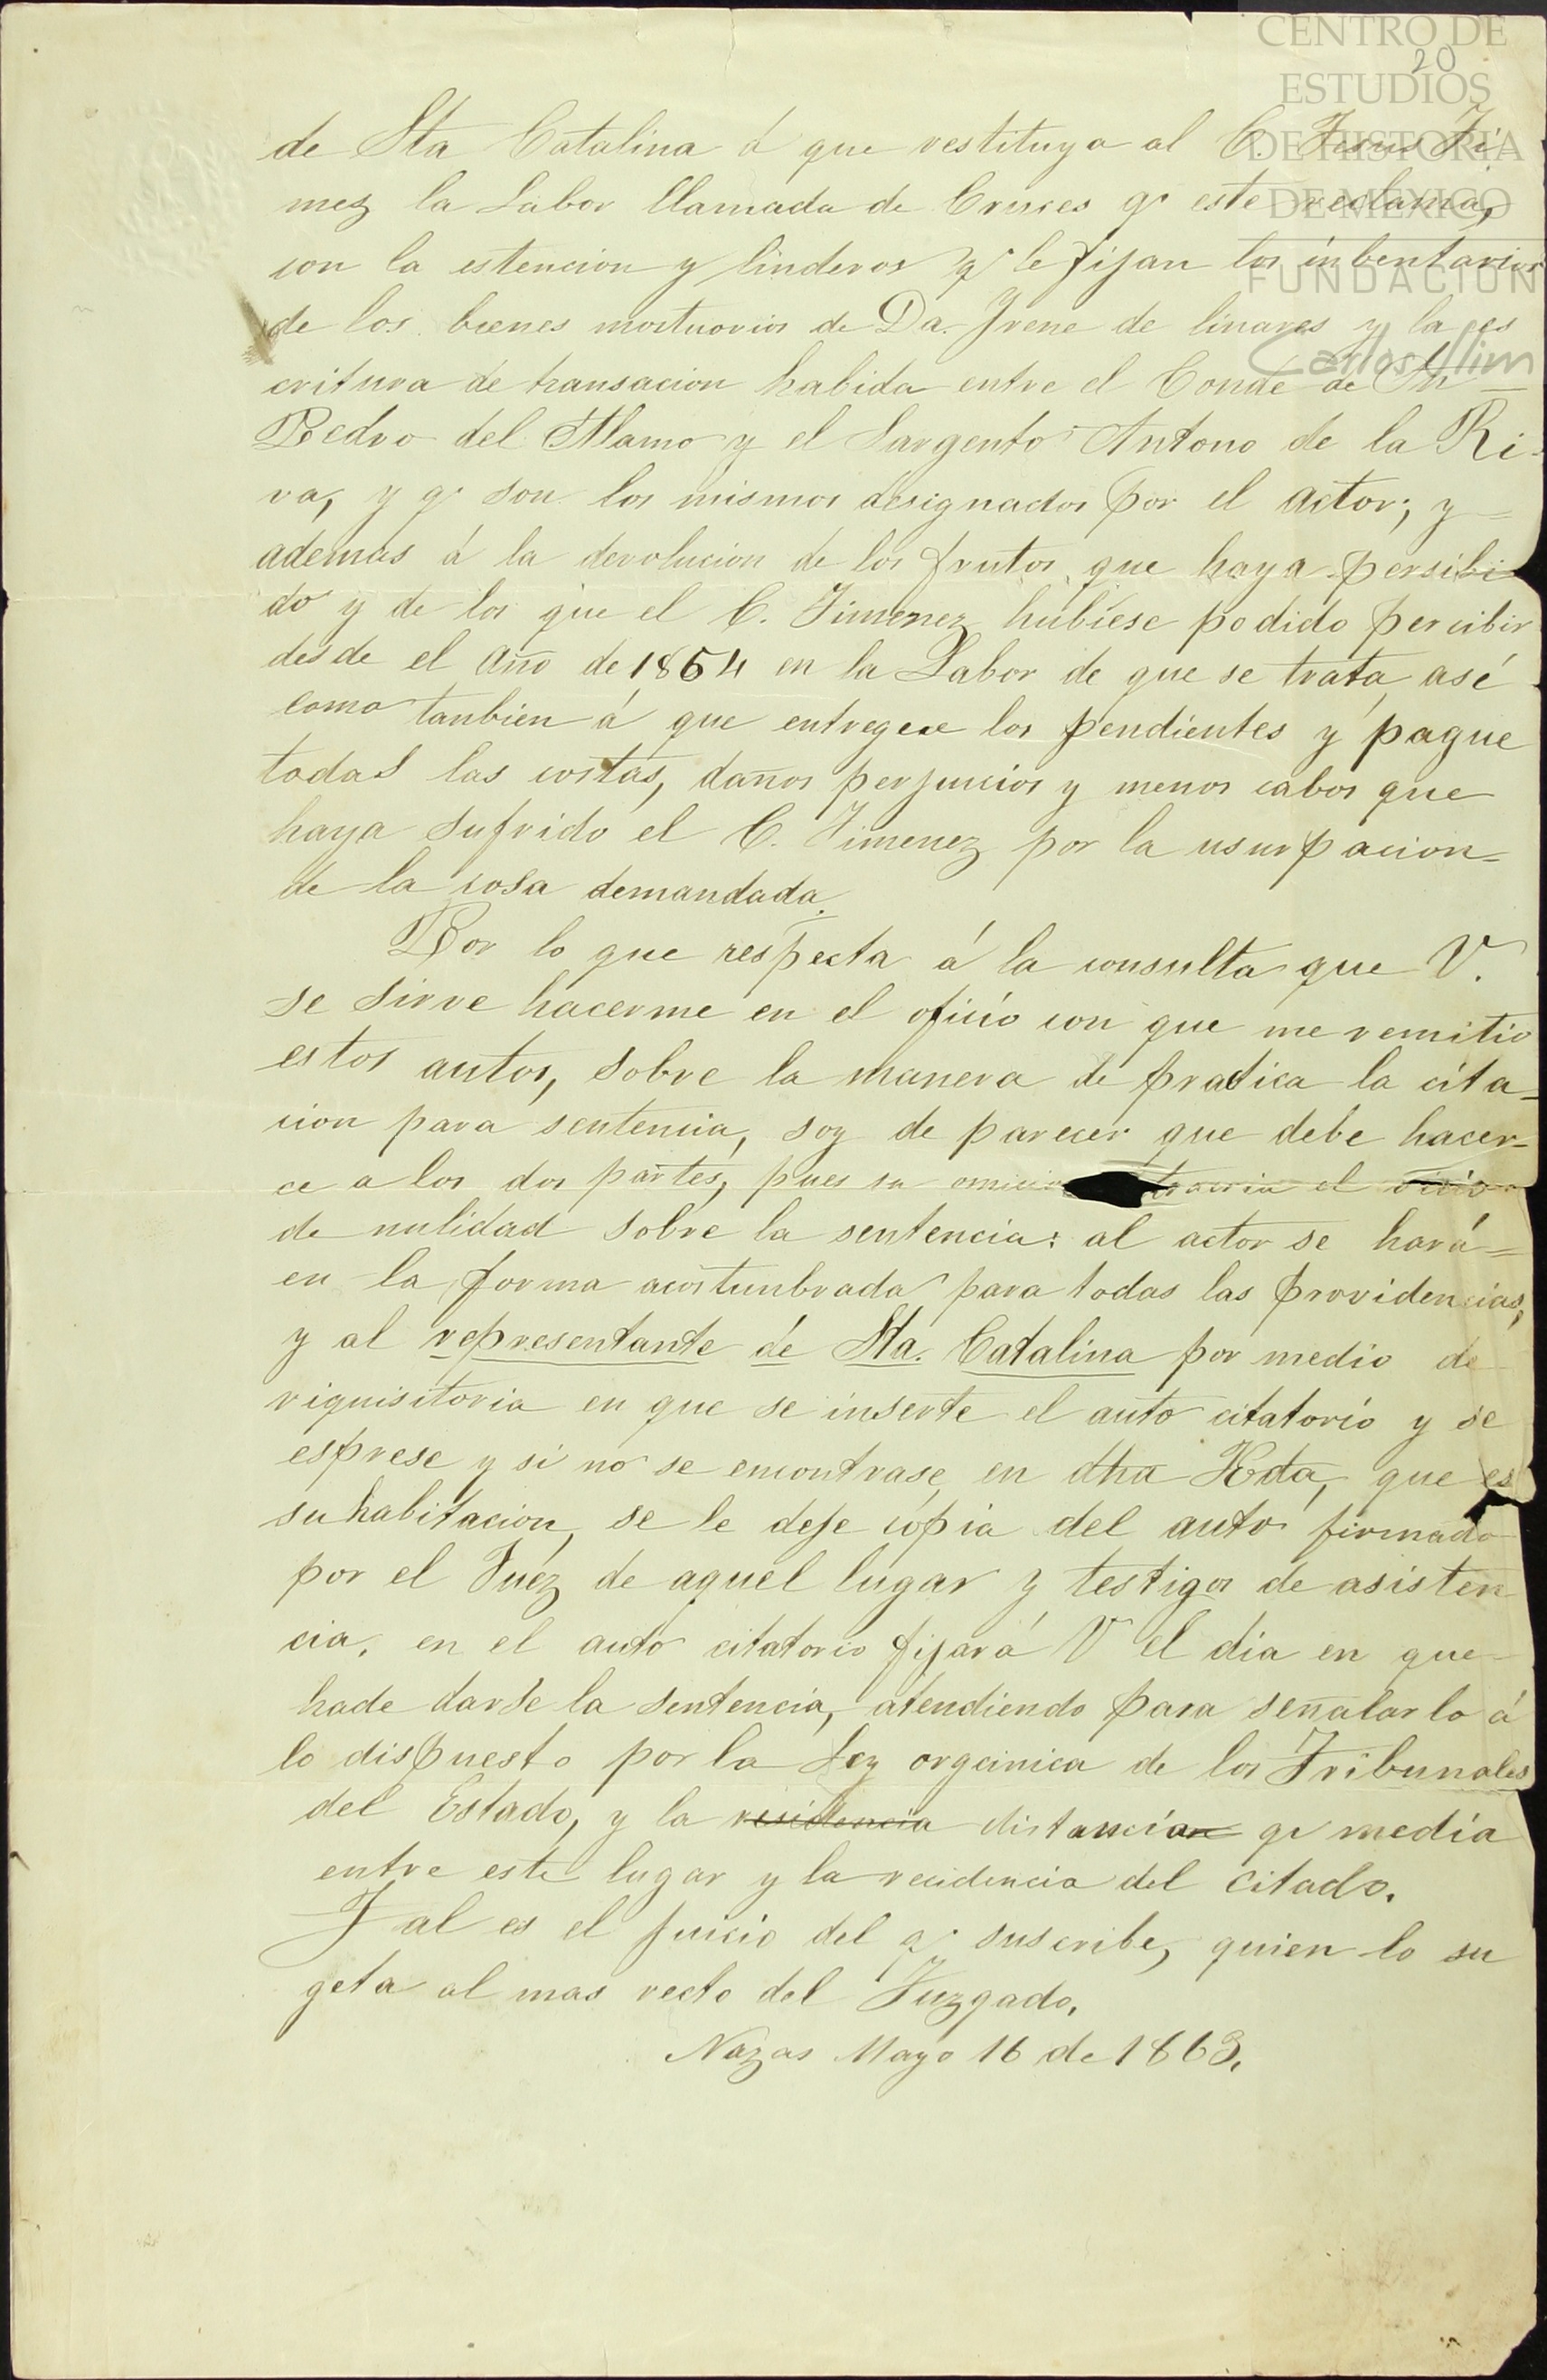 CENTRO DE
20
ESTUDIOS
DE HISTORIA
DE MEXICO
FUNDACION
Carlos Slim
de Sta Catalina á que restituya al C. Jesus Ji-
mez la Labor llamada de Cruces qe este reclama,
con la estencion y linderos qe le fijan los inbentarios
de los bienes mortuorios de Da. Irene de linares y la es
critura de transacion habida entre el Conde de Sn
Pedro del Alamo y el Sargento Antono de la Ri-
va, y qe son los mismos designados por el actor; y =
ademas á la devolucion de los frutos que haya persibi
do y de los que el C. Jimenez hubiese podido percibir
desde el año de 1854 en la Labor de que se trata, asé
como tanbien á que entregue los pendientes y pague
todas las costas, daños perjuicios y menos cabos que
haya sufrido el C. Jimenez por la usurpacion =
de la cosa demandada.
Por lo que respecta á la consulta que V.
se sirve hacerme en el oficio con que me remitio
estos autos, sobre la manera de practica la cita-
cion para sentencia, soy de parecer que debe hacer-
ce a los dos partes, pues su omicion traeria el vicio
de nulidad sobre la sentencia: al actor se hará =
en la forma acostunbrada para todas las providencias,
y al representante de Sta. Catalina por medio de
riquisitoria en que se inserte el auto citatorio y se
esprese y si no se encontrase en dha Hda, que es
su habitacion, se le deje copia del auto firmado
por el Juez de aquel lugar y testigos de asisten
cia, en el auto citatorio fijará V el dia en que
hade darse la sentencia, atendiendo para señalarlo á
lo dispuesto por la Ley organica de los Tribunales
del Estado, y la residencia distancia qe media
entre este lugar y la recidencia del citado.
Tal es el juicio del qe suscribe, quien lo su
geta al mas recto del Juzgado.
Nazas Mayo 16 de 1863.